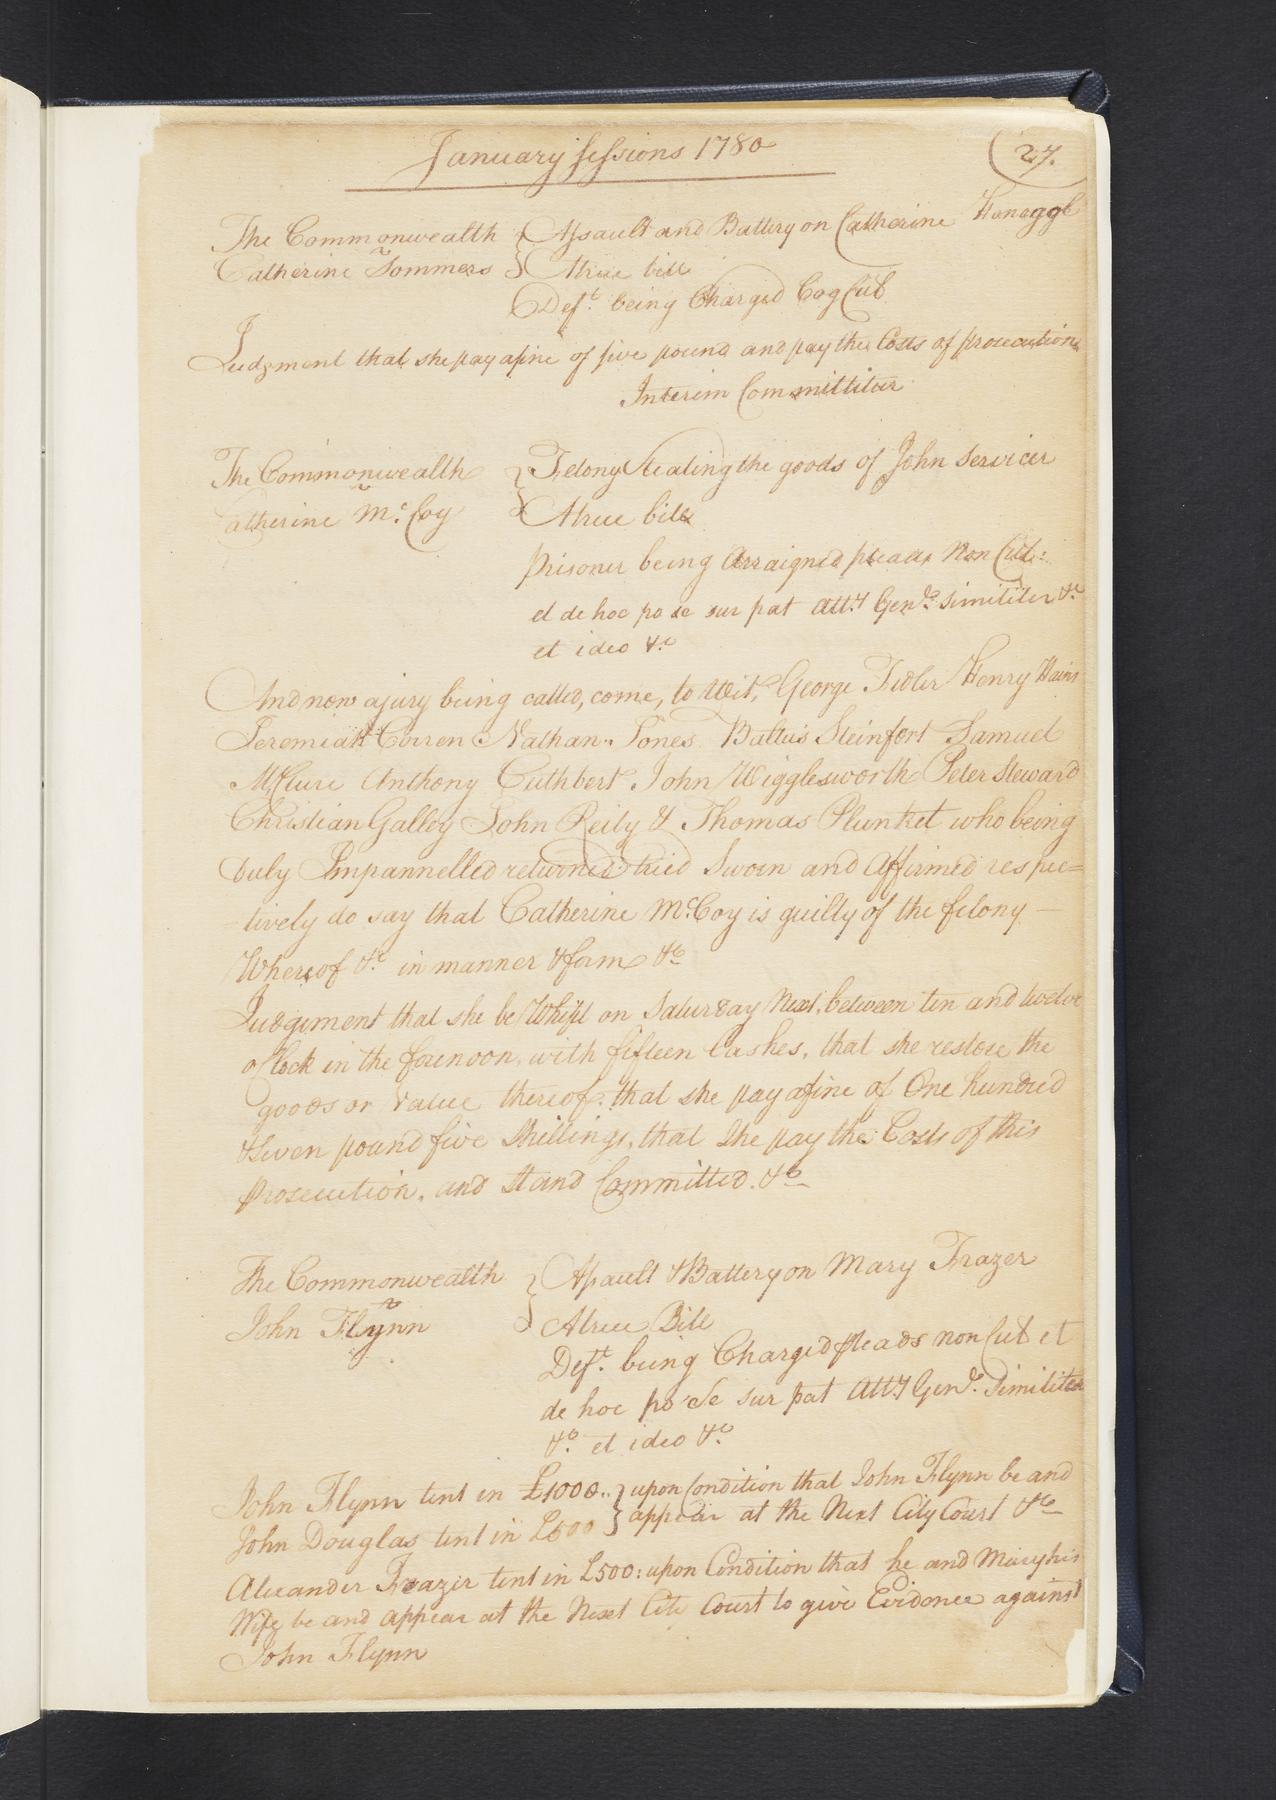 January Sessions 1780
27.
The Commonwealth
Catherine Sommers
Assault and Battery on Catherine
A true bill
Deft. being Charged Cog Cul
Judgment that she pay a fine of five pound and pay the Costs of prosecution
Interim Committitur
The Commonwealth
Catherine McCoy
Felony Stealing the goods of John Servicer
A true bill
Prisoner being Arraigned pleads Non Cul:
et de hoc po se sur pat Atty Genl. Similiter &c
et ideo &c
And now a jury being called, come, to Wit, George Fidler Henry Hains
Jeremiah Corren Nathan Jones Baltus Steinfort Samuel
McClure Anthony Cuthbert John Wigglesworth Peter Steward
Christian Galley John Reily & Thomas Plunket who being
duly Impannelled returned tried Sworn and Affirmed respec=
-tively do say that Catherine McCoy is guilty of the felony —
Whereof &c in manner & form &c
Judgement that she be Whipt on Saturday Next, between ten and twelve
o'Clock in the forenoon, with fifteen Lashes, that she restore the
goods or Value thereof, that she pay a fine of One hundred
& Seven pound five Shillings, that She pay the Costs of this
Prosecution, and Stand Committed. &c
The Commonwealth
John Flynn
Assault & Battery on Mary Frazer
A true Bill
Deft. being Charged pleads non Cul et
de hoc po Se sur pat Atty Genl. Similiter
&c. et ideo &c.
John Flynn tent in £1000..
John Douglas tent in £500
upon Condition that John Flynn be and
appear at the Next City Court &c
Alexander Frazer tent in £500: upon Condition that he and Mary his
Wife be and appear at the Next City Court to give Evidence against
John Flynn